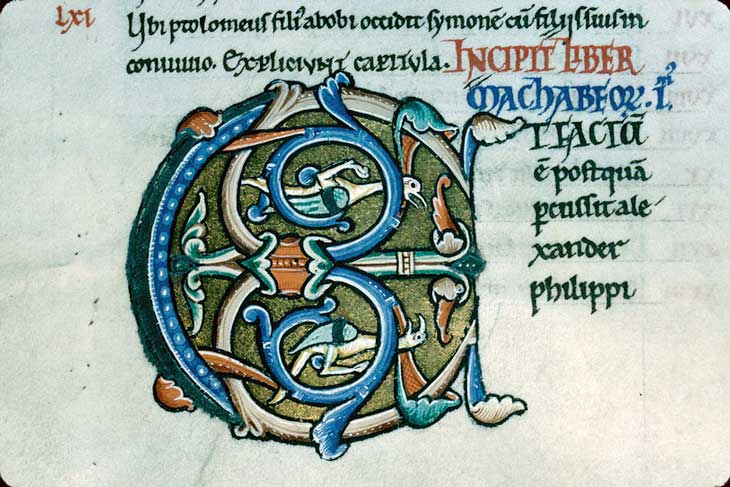 lxi
Ubi ptolomeus fili' abobi occidit symonē cū filiis suis in
conuiuio. Expliciunt capitula. INCIPIT LIBER
MACHABEOR. I.
E T FACTŪ
ē postquā
p̄cussit ale
xander
philippi